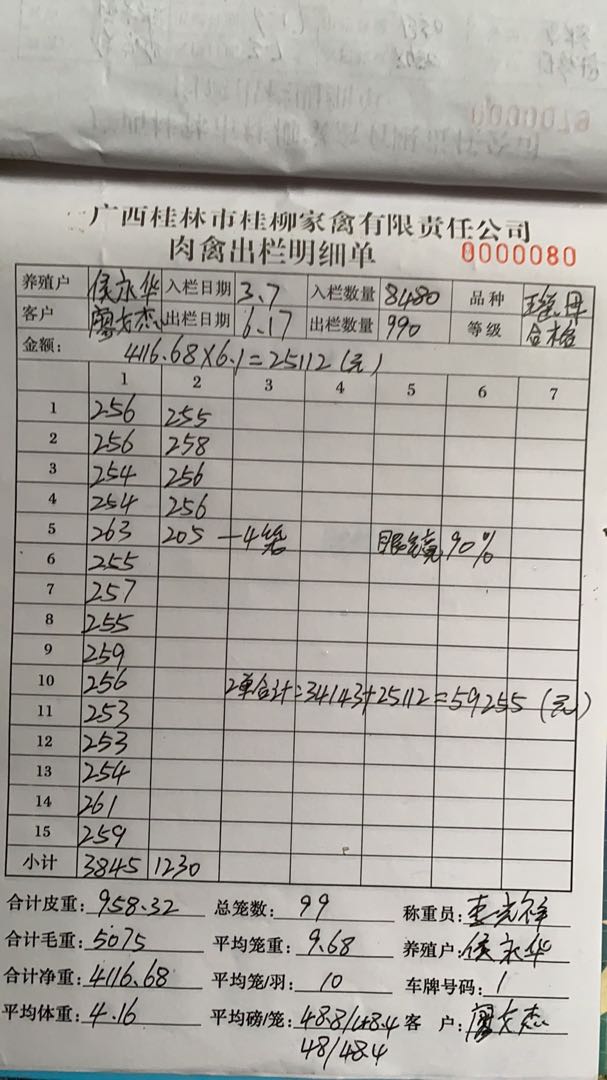 广西桂林市桂柳家禽有限责任公司
肉禽出栏明细单 0000080
养殖户 侯永华 入栏日期 3.7 入栏数量 8480 品种
客户 廖文杰 出栏日期 6.17 出栏数量 990 等级 合格
金额: 4116.68×6.1=25112(元)
1 2 3 4 5 6 7
1 256 255
2 256 258
3 254 256
4 254 256
5 263 205 —4笼 眼镜 90%
6 255
7 257
8 255
9 259
10 256 2单合计=34143+25112=59255(元)
11 253
12 253
13 254
14 261
15 259
小计 3845 1230
合计皮重: 958.32 总笼数: 99 称重员:
合计毛重: 5075 平均笼重: 9.68 养殖户: 侯永华
合计净重: 4116.68 平均笼/羽: 10 车牌号码: 1
平均体重: 4.16 平均磅/笼: 48.8/48.4 客 户: 廖文杰
48/48.4